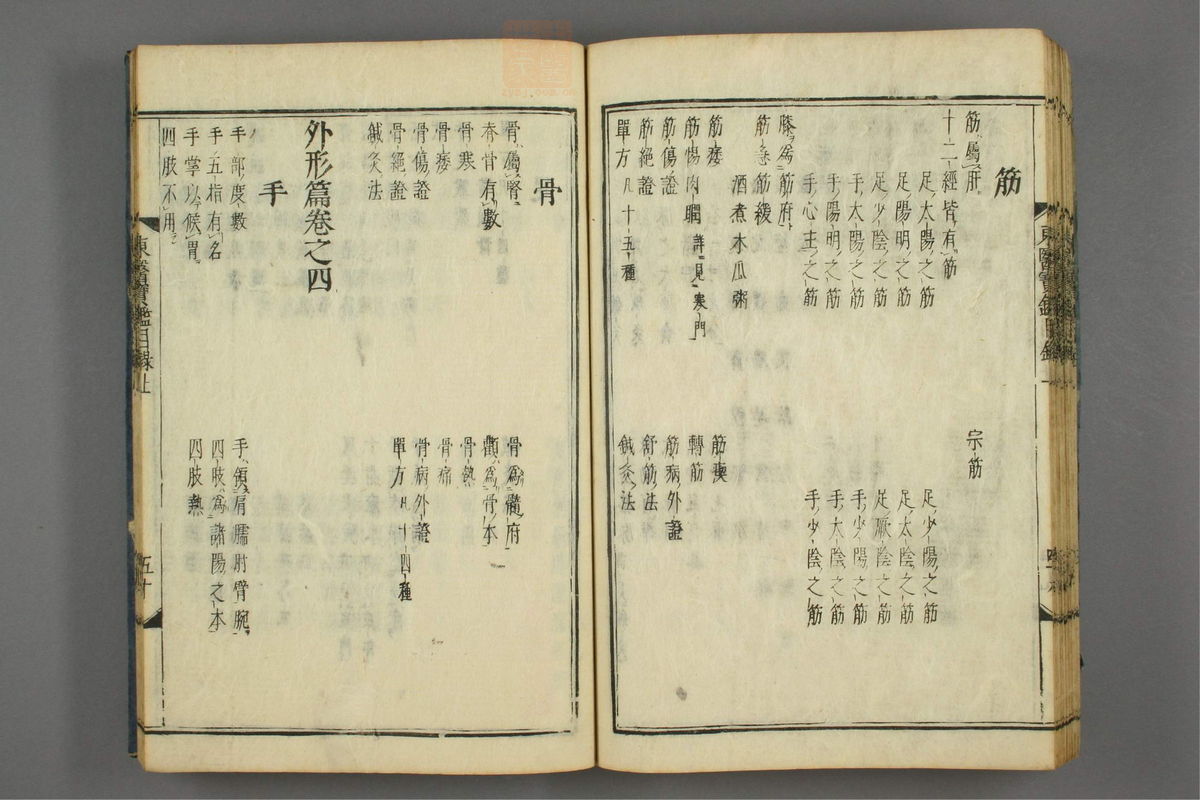 筋
筋屬肝
宗筋
十二經皆有筋
足太陽之筋
足少陽之筋
足陽明之筋
足太陰之筋
足少陰之筋
足厥陰之筋
手太陽之筋
手少陽之筋
手陽明之筋
手太陰之筋
手心主之筋
手少陰之筋
膝爲筋府
筋急筋緩
酒煮木瓜粥
筋痿
筋惕肉瞤 詳見寒門
轉筋
筋傷證
筋病外證
筋絕證
舒筋法
單方凡十五種
鍼灸法
骨
骨屬腎
骨爲髓府
脊骨有數
顱爲骨本
骨寒
骨熱
骨痿
骨痛
骨傷證
骨病外證
骨絕證
單方凡十四種
鍼灸法
外形篇卷之四
手
手部度數
手領肩臑肘臂腕
手五指有名
四肢爲諸陽之本
手掌以候胃
四肢熱
四肢不用
東醫寶鑑目錄上
五十
zysj.com.cn